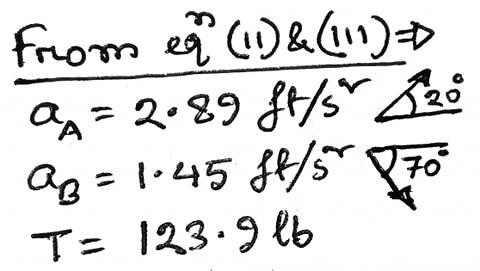 From eqⁿ (11) & (111) ⇒
a_A = 2.89 ft/s² 20°
a_B = 1.45 ft/s² 70°
T = 123.9 lb